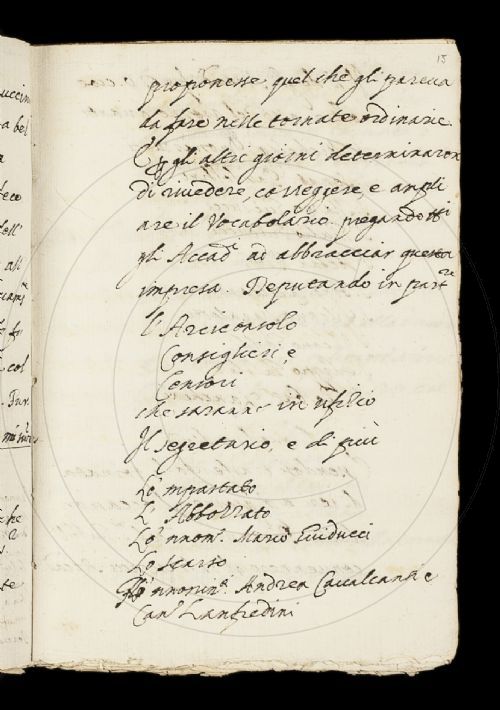 15
proponesse quel che gli pareva
da fare nelle tornate ordinarie.
E gli altri giorni determinaron
di rivedere, correggere, e ampli
are il Vocabolario pregandosi
gli Accad. ad abbracciar questa
impresa. Deputando in part.re
l'Arciconsolo
Consiglieri e
Censori
che saranno in ufizio
Il segretario, e di più
Lo 'mpastato
L'Abbozzato
Lo 'nnom. Mario Guiducci
Lo scarso
Lo 'nnomin.o Andrea Cavalcanti e
Can.co Lanfredini